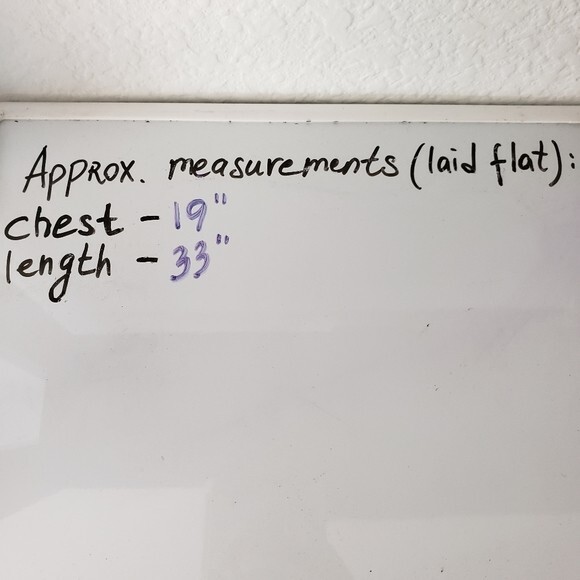 Approx. measurements (laid flat):
chest - 19"
length - 33"